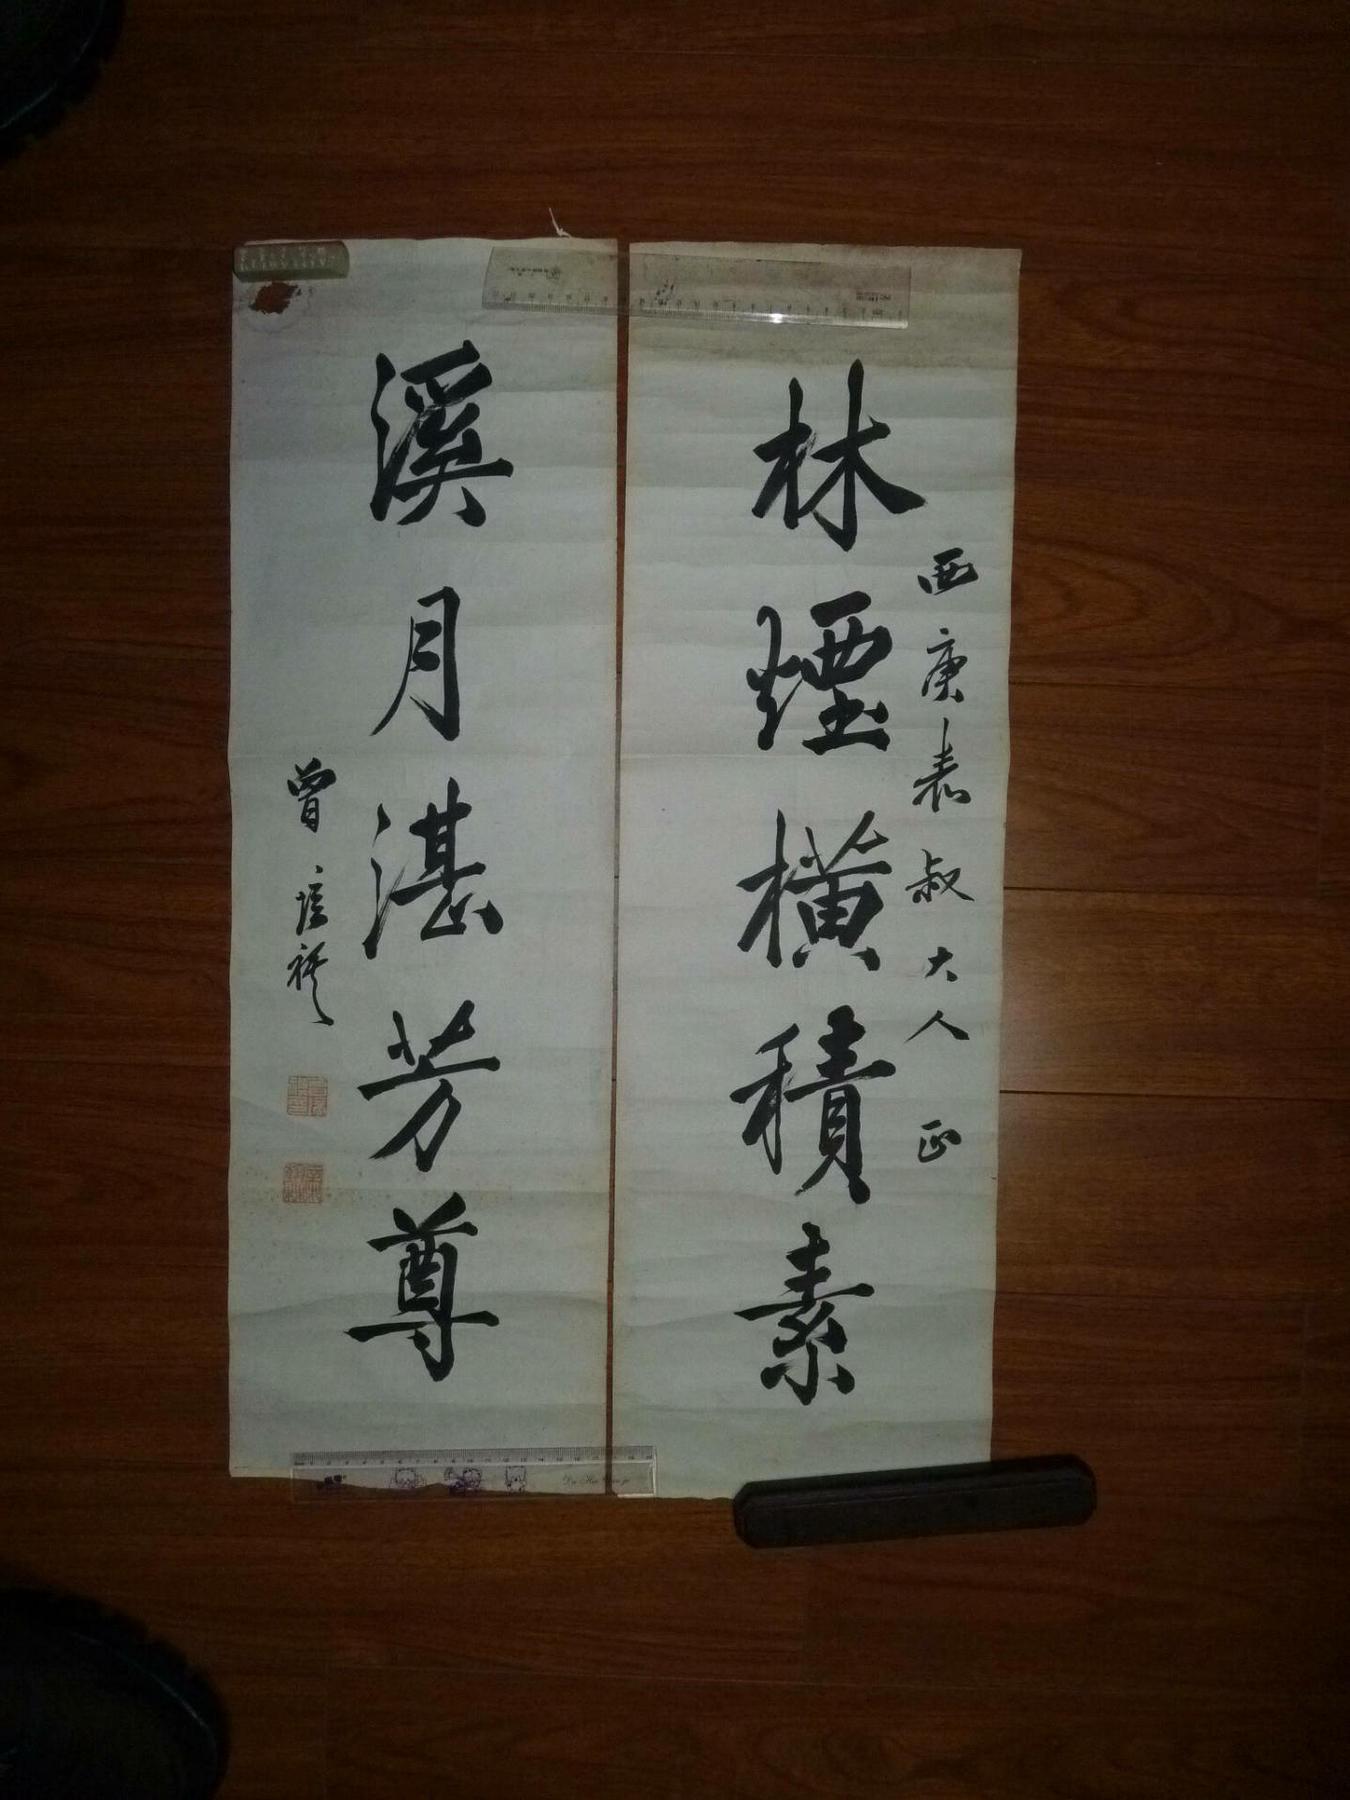 林煙橫積素
西庚表叔大人正
溪月湛芳尊
曾培祺